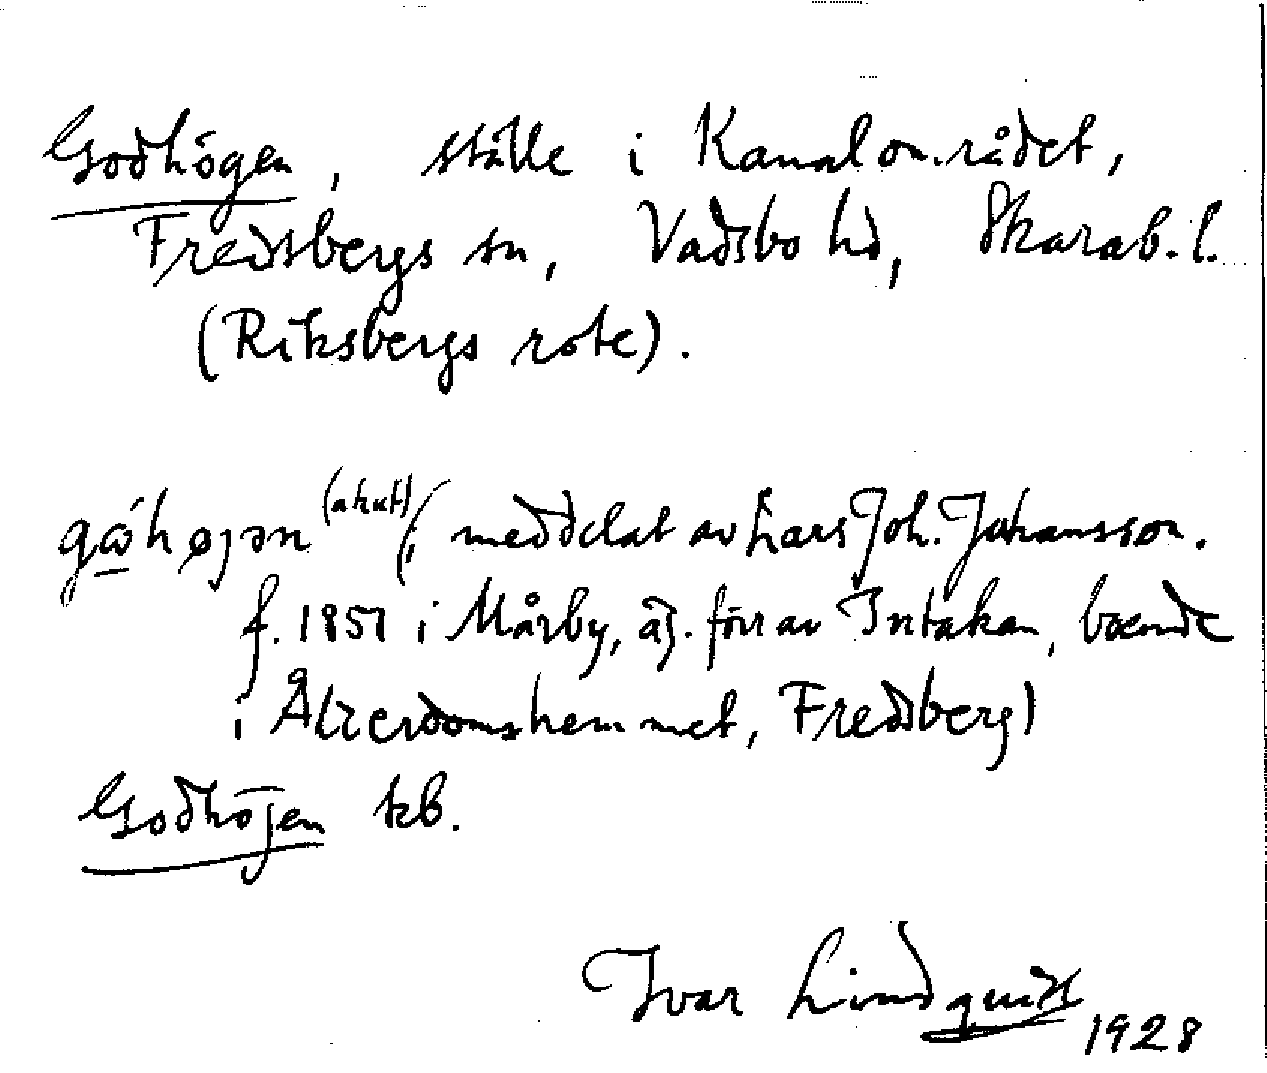 Godhögen, ställe i Kanalområdet,
Fredsbergs sn, Vadsbo hd, Skarab. l.
(Riksbergs rote).
gώ̲højən (akut) (; meddelat av Lars Joh. Johansson.
f. 1851 i Mårby, äg. förr av Intakan, boende
i Ålderdomshemmet, Fredsberg)
Godhöjen kb.
Ivar Lindquist
1928